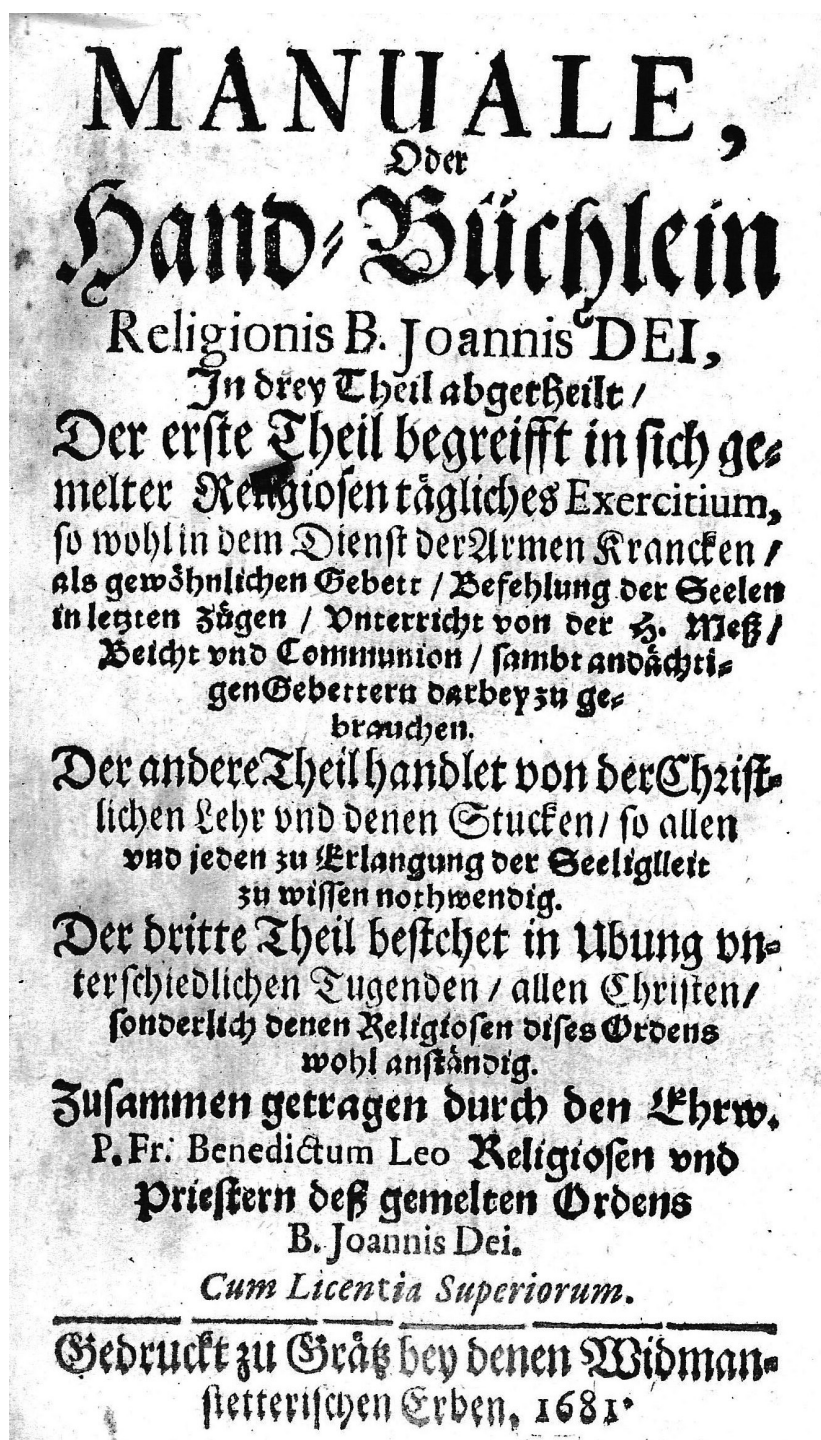 MANUALE,
Oder
Hand-Büchlein
Religionis B. Joannis DEI,
In drey Theil abgetheilt /
Der erste Theil begreifft in sich ge-
melter Religiosen tägliches Exercitium,
so wohl in dem Dienst der Armen Krancken /
als gewöhnlichen Gebett / Befehlung der Seelen
in letzten Zügen / Vnterricht von der H. Meß /
Beicht vnd Communion / sambt andächti-
gen Gebettern darbey zu ge-
brauchen.
Der andere Theil handlet von der Christ-
lichen Lehr vnd denen Stucken / so allen
vnd jeden zu Erlangung der Seeliglleit
zu wissen nothwendig.
Der dritte Theil bestehet in Ubung vn-
terschiedlichen Tugenden / allen Christen /
sonderlich denen Religiosen dises Ordens
wohl anständig.
Zusammen getragen durch den Ehrw.
P. Fr. Benedictum Leo Religiosen vnd
Priestern deß gemelten Ordens
B. Joannis Dei.
Cum Licentia Superiorum.
Gedruckt zu Grätz bey denen Widman-
stetterischen Erben, 1681.